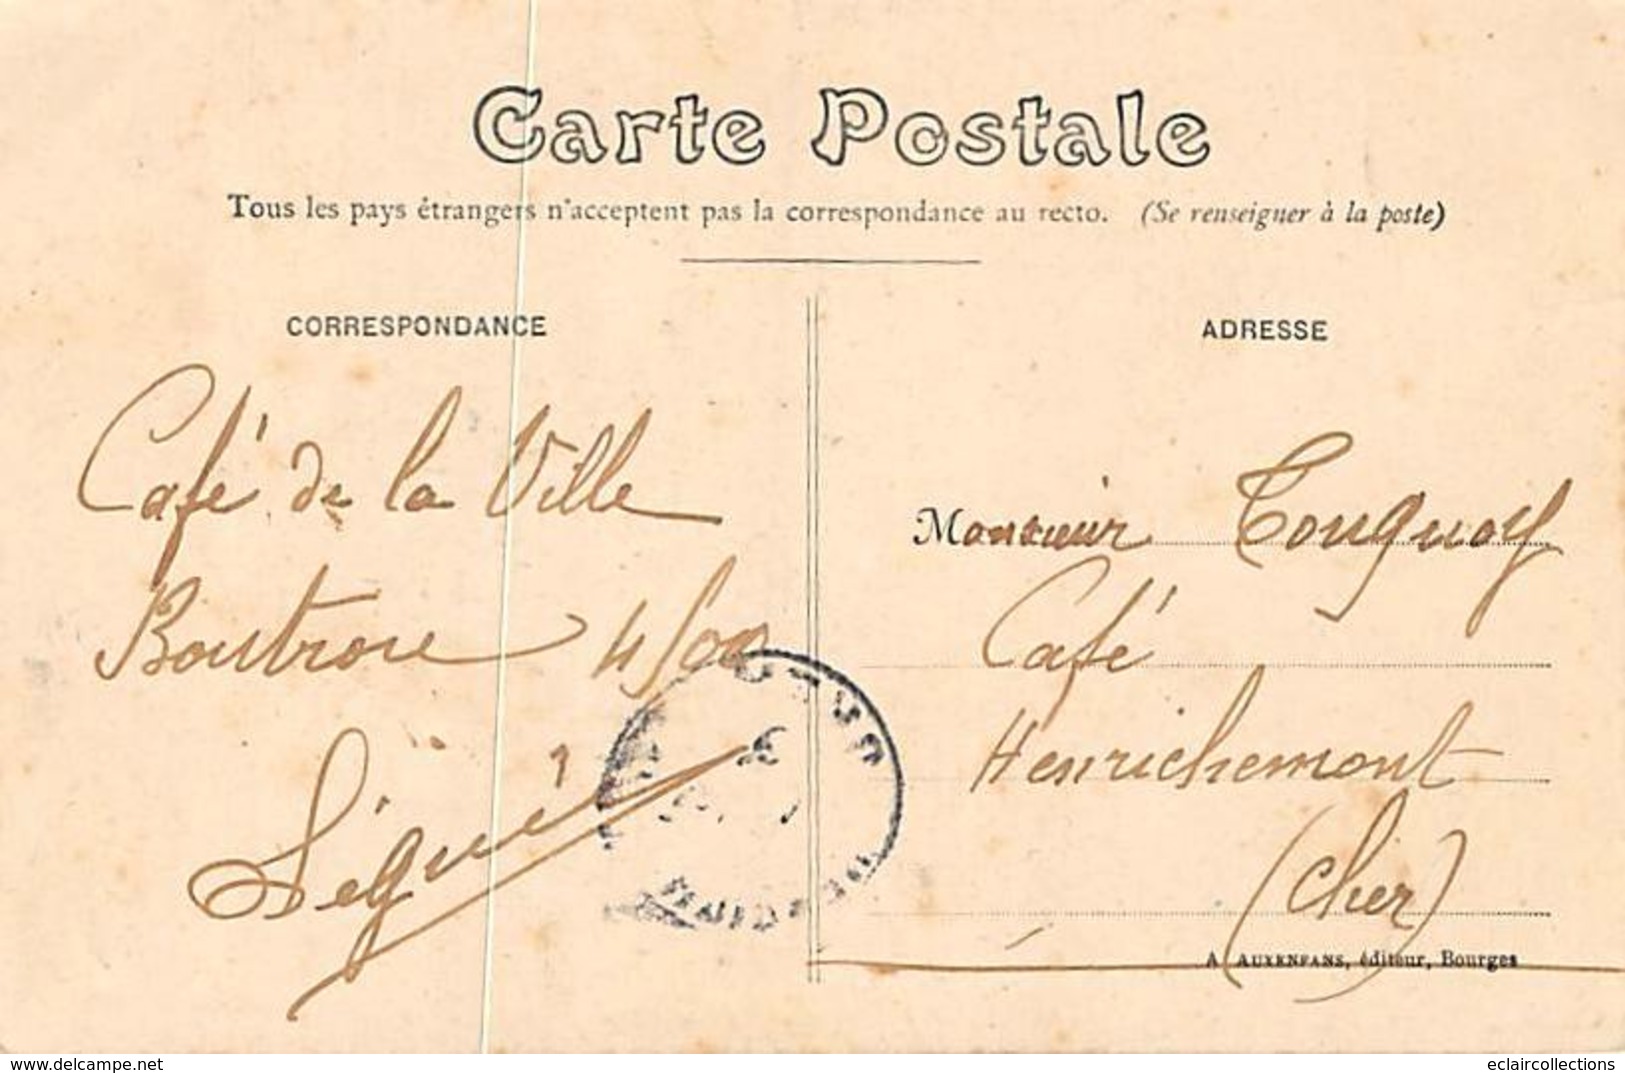 Carte Postale
Tous les pays étrangers n'acceptent pas la correspondance au recto. (Se renseigner à la poste)
CORRESPONDANCE
Café de la Ville
4/00
Ségué
ADRESSE
Monsieur Touguoy
Café
Henrichemont
(Cher)
A AUXENFANS, éditeur, Bourges
www.delcampe.net
eclaircollections